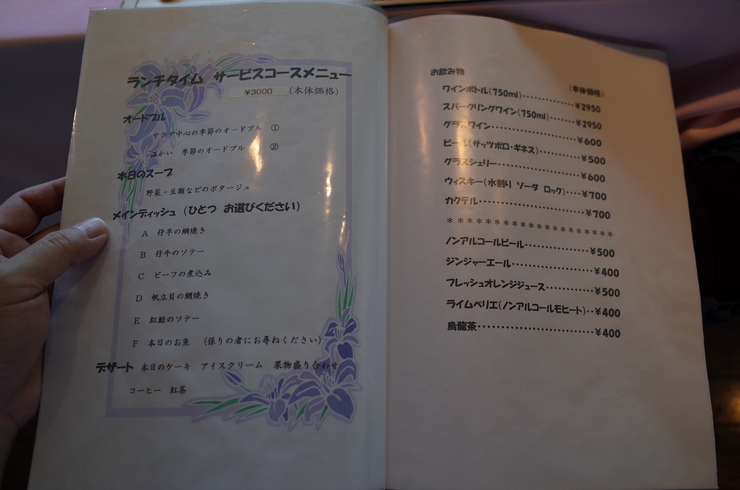 ランチタイム サービスコースメニュー
¥3000 (本体価格)
オードブル
サラダ中心の季節のオードブル ①
温かい 季節のオードブル ②
本日のスープ
野菜・豆類などのポタージュ
メインディッシュ (ひとつ お選びください)
A 仔羊の網焼き
B 仔牛のソテー
C ビーフの煮込み
D 帆立貝の網焼き
E 紅鮭のソテー
F 本日のお魚 (係りの者にお尋ねください)
デザート 本日のケーキ アイスクリーム 果物盛り合わせ
コーヒー 紅茶
お飲み物
(本体価格)
ワインボトル(750ml)……………¥2950
スパークリングワイン(750ml)…………¥2950
グラスワイン……………………¥600
ビール(サッポロ・ギネス)…………¥500
グラスシェリー……………………¥600
ウィスキー(水割り ソーダ ロック)……¥700
カクテル……………………¥700
********************
ノンアルコールビール……………¥500
ジンジャーエール………………¥400
フレッシュオレンジジュース…………¥500
ライムペリエ(ノンアルコールモヒート)‥¥400
烏龍茶……………………¥400